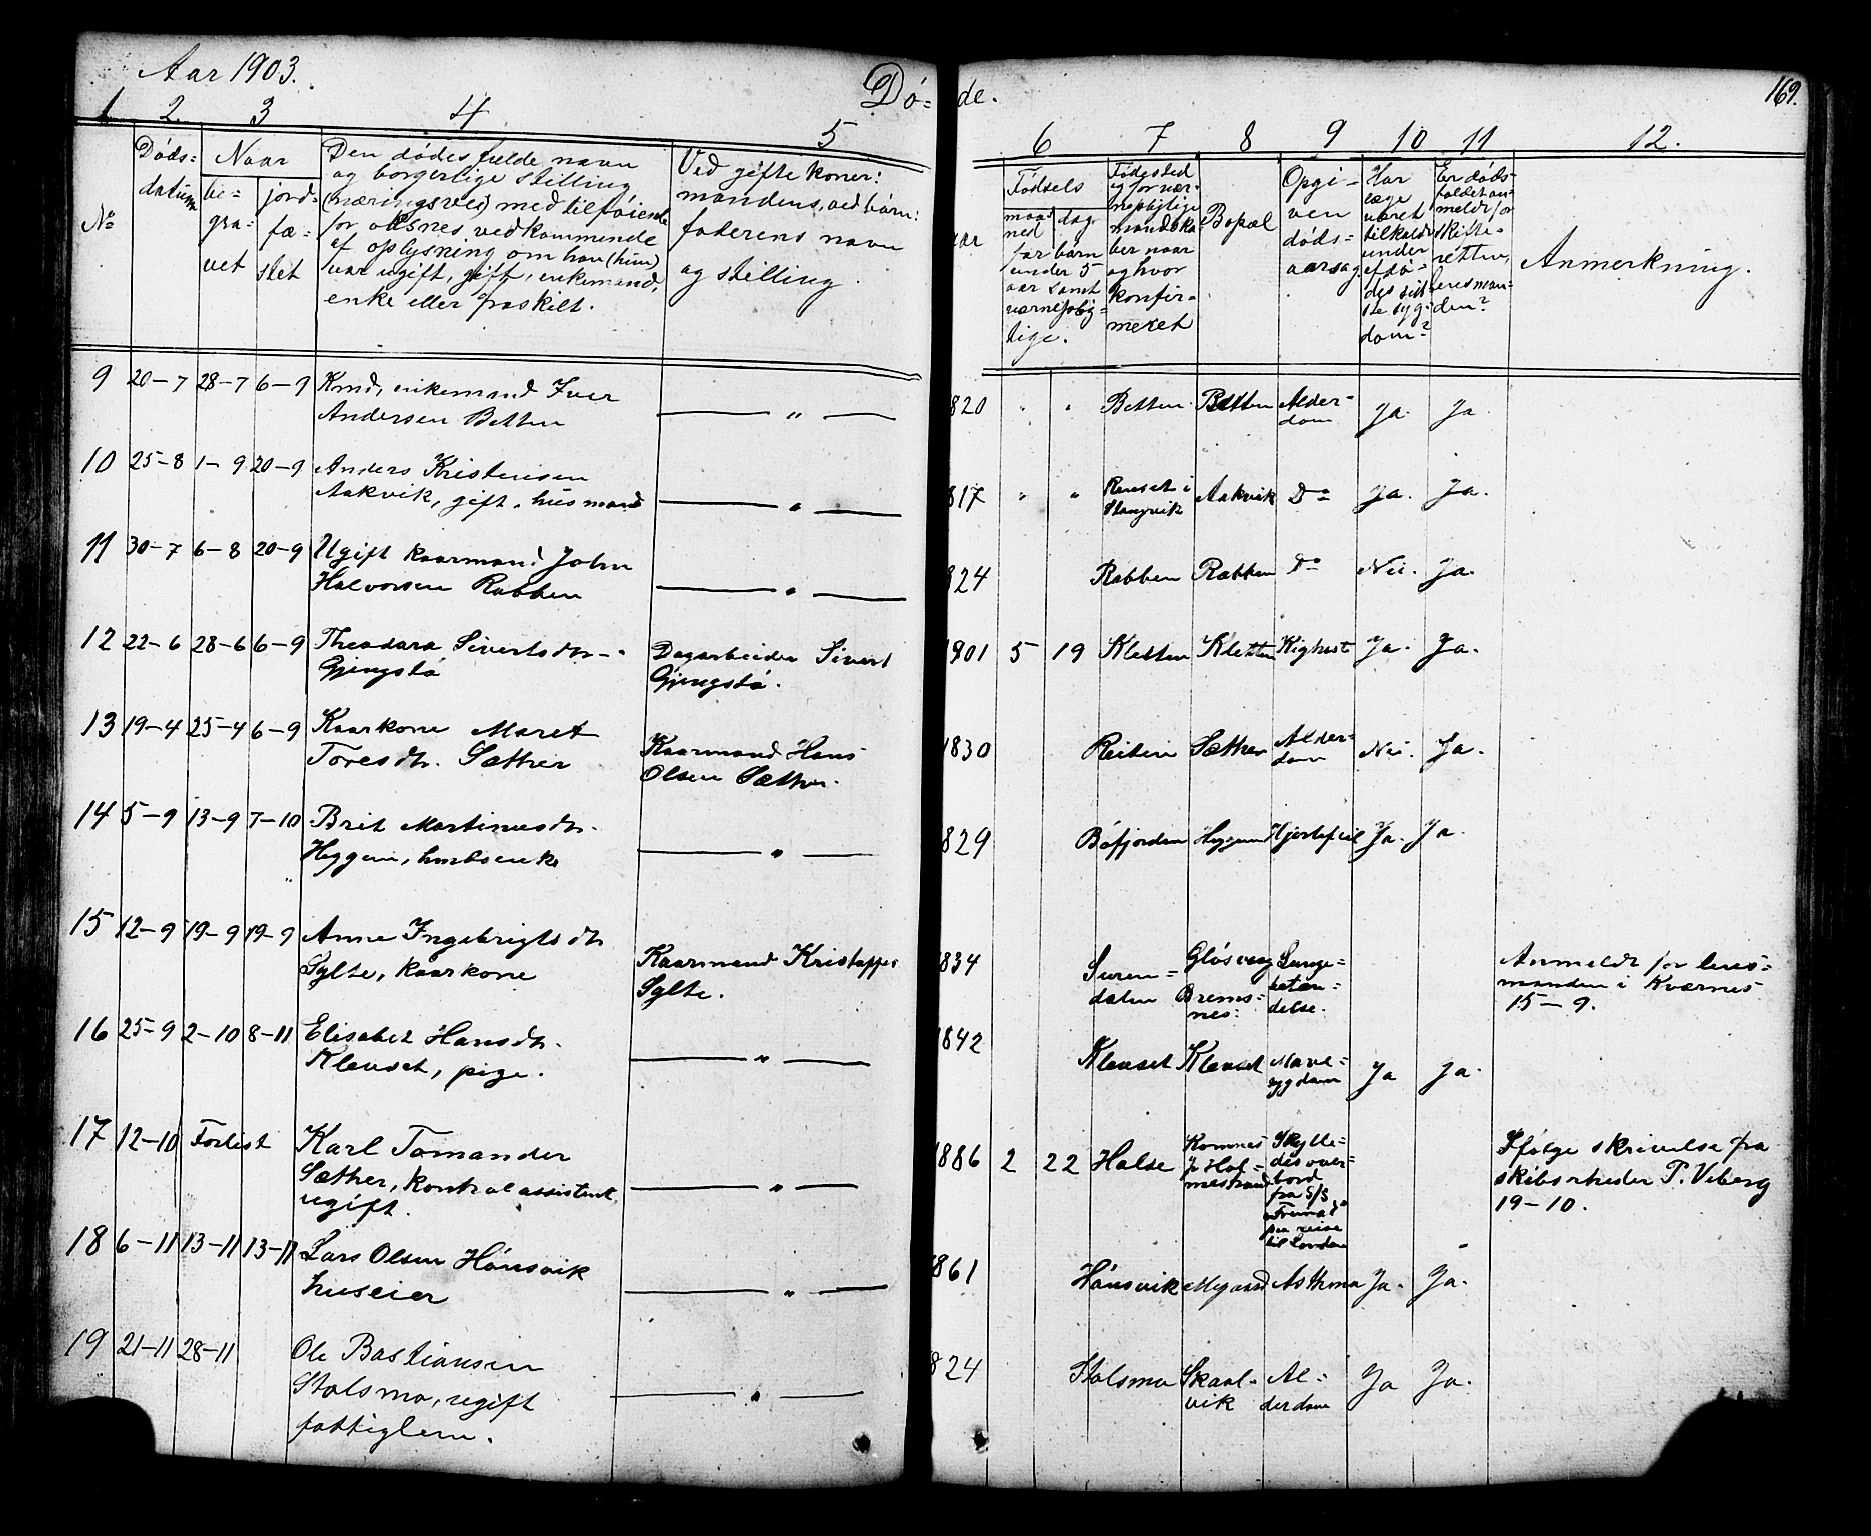 Aar 1903.
Dö=
de.
169.
1 2 3 4 5
6 7 8 9 10 11 12.
No
Döds=
datum
Naar
be=
gra=
vet
jord=
fæ=
stet
Den dödes fulde navn
og borgerlige stilling,
(næringsvei) med tilföiende
for voksnes vedkommende
af oplysning om han (hun)
var ugift, gift, enkemand,
enke eller fraskilt.
Ved gifte koner:
mandens, ved börn:
faderens navn
og stilling.
aar
Födsels
maa=
ned
dag
for börn
under 5
aar samt
værnepligtige.
Födested
og for vær=
nepligtige
mandska=
ber naar
og hvor
konfir=
meret
Bopæl
Opgi=
ven
döds=
aarsag
Har
læge
været
tilkaldt
under
afdö=
des sid=
ste syg=
dom?
Er döds=
faldet an=
meldt for
skifte=
retten,
lensman=
den?
Anmerkning.
9 20-7 28-7 6-9 Kmd, enkemand Iver
Andersen Betten
— " —
820 " " Betten Betten Alder=
dom Ja. Ja.
10 25-8 1-9 20-9 Anders Kristensen
Aakvik, gift, husmand
— " —
817 " " Renset i
Stangvik Aakvik Do Ja. Ja.
11 30-7 6-8 20-9 Ugift kaarmand John
Halvorsen Rabben
— " —
824 Rabben Rabben Do Nei. Ja.
12 22-6 28-6 6-9 Theodora Sivertsdtr.
Gjengstö
Dagarbeider Sivert
Gjengstö.
1901 5 19 Kletten Kletten Kighost Ja. Ja.
13 19-4 25-4 6-9 Kaarkone Maret
Toresdtr. Sæther
Kaarmand Hans
Olsen Sæther.
1830 Reiten Sæther Alder=
dom Nei. Ja.
14 5-9 13-9 7-10 Brit Martinusdtr.
Heggem,
— " —
829 Böfjorden Heggem Hjertefeil Ja. Ja.
15 12-9 19-9 19-9 Anne Ingebrigtsdtr
Sylte, kaarkone
Kaarmand Kristoffer
Sylte.
834 Suren=
dalen Glösvaag
Brems=
nes. Lunge=
betæn=
delse.
Anmeldt for lens=
manden i Kværnes
15-9.
16 25-9 2-10 8-11 Elisabet Hansdtr.
Klevset, pige.
— " —
1842 Klevset Klevset Mave=
sygdom Ja Ja.
17 12-10 Forlist Karl Tomander
Sæther, kontrolassistent,
ugift.
— " —
1886 2 22 Halse
Hol=
mestrand Skylle=
des over=
bord
fra S/S
"Fremad"
paa reise
til London
Ifölge skrivelse fra
skibsrheder P. Viberg
19-10.
18 6-11 13-11 13-11 Lars Olsen Hönsvik
huseier
— " —
861 Hönsvik Megaard Asthma Ja. Ja.
19 21-11 28-11 Ole Bastiansen
Stolsmo, ugift
fattiglem.
— " —
824 Stolsmo Skaal=
vik Al=
derdom Ja Ja.